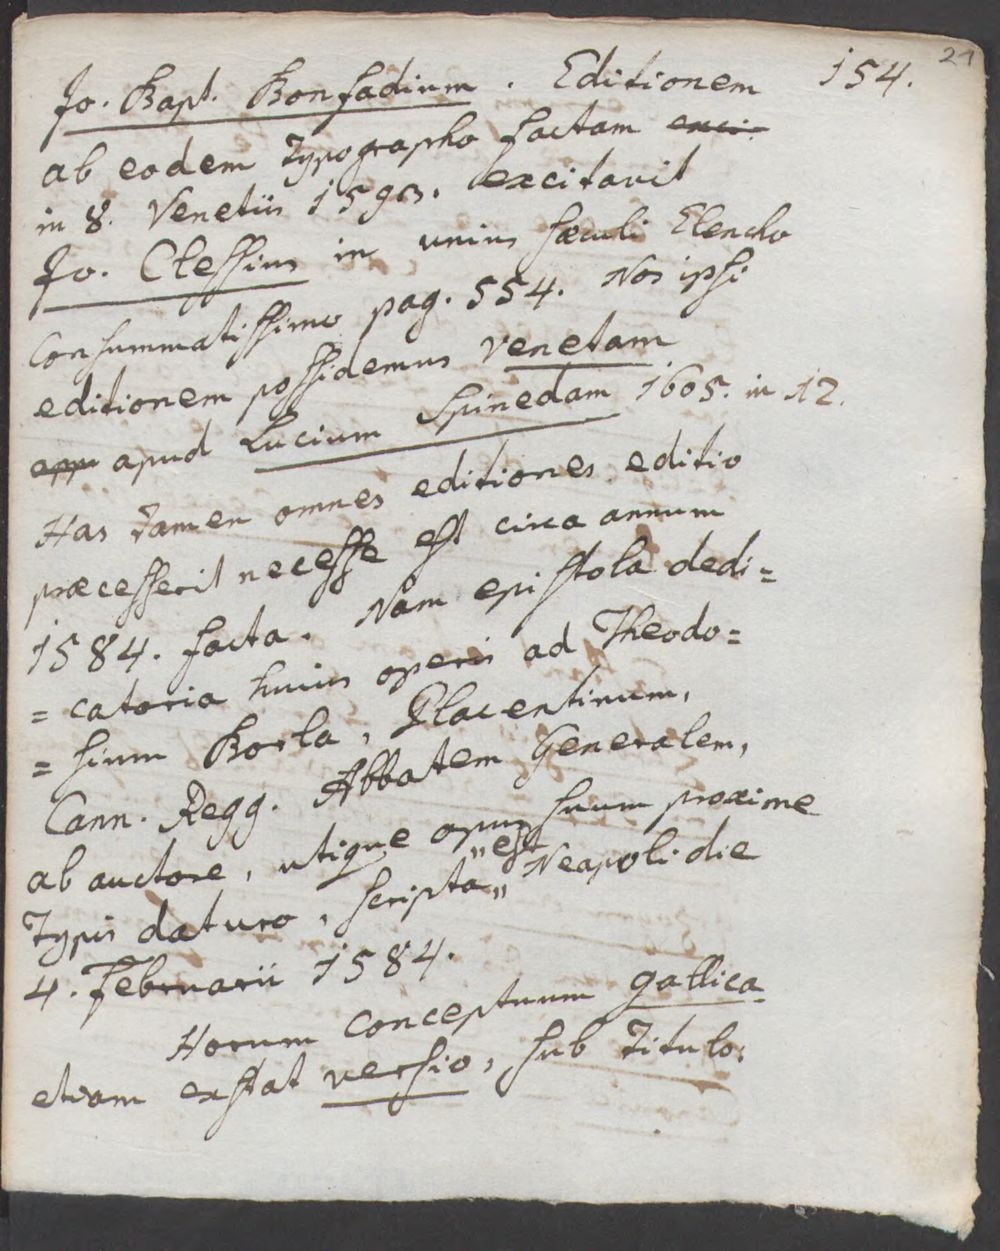 21
Jo. Bapt. Bonfadium. Editionem 154.
ab eodem Typographo factam exci-
in 8. Venetiis 1593. excitavit
Jo. Clessius in unius sæculi Elencho
Consummatissimo pag. 554. Nos ipsi
editionem possidemus Venetam
app apud Lucium Spinedam 1605. in 12.
Has tamen omnes editiones editio
præcesserit necesse est circa annum
1584. facta. Nam epistola dedi=
=catoria huius operis ad Theodo=
=sium Borla, Placentinum,
Cann. Regg. Abbatem Generalem,
ab auctore, utique opus suum proxime
"est
Typis daturo, scripta" Neapoli die
4. Februarii 1584.
Horum Conceptuum gallica
etiam exstat versio, sub Titulo: